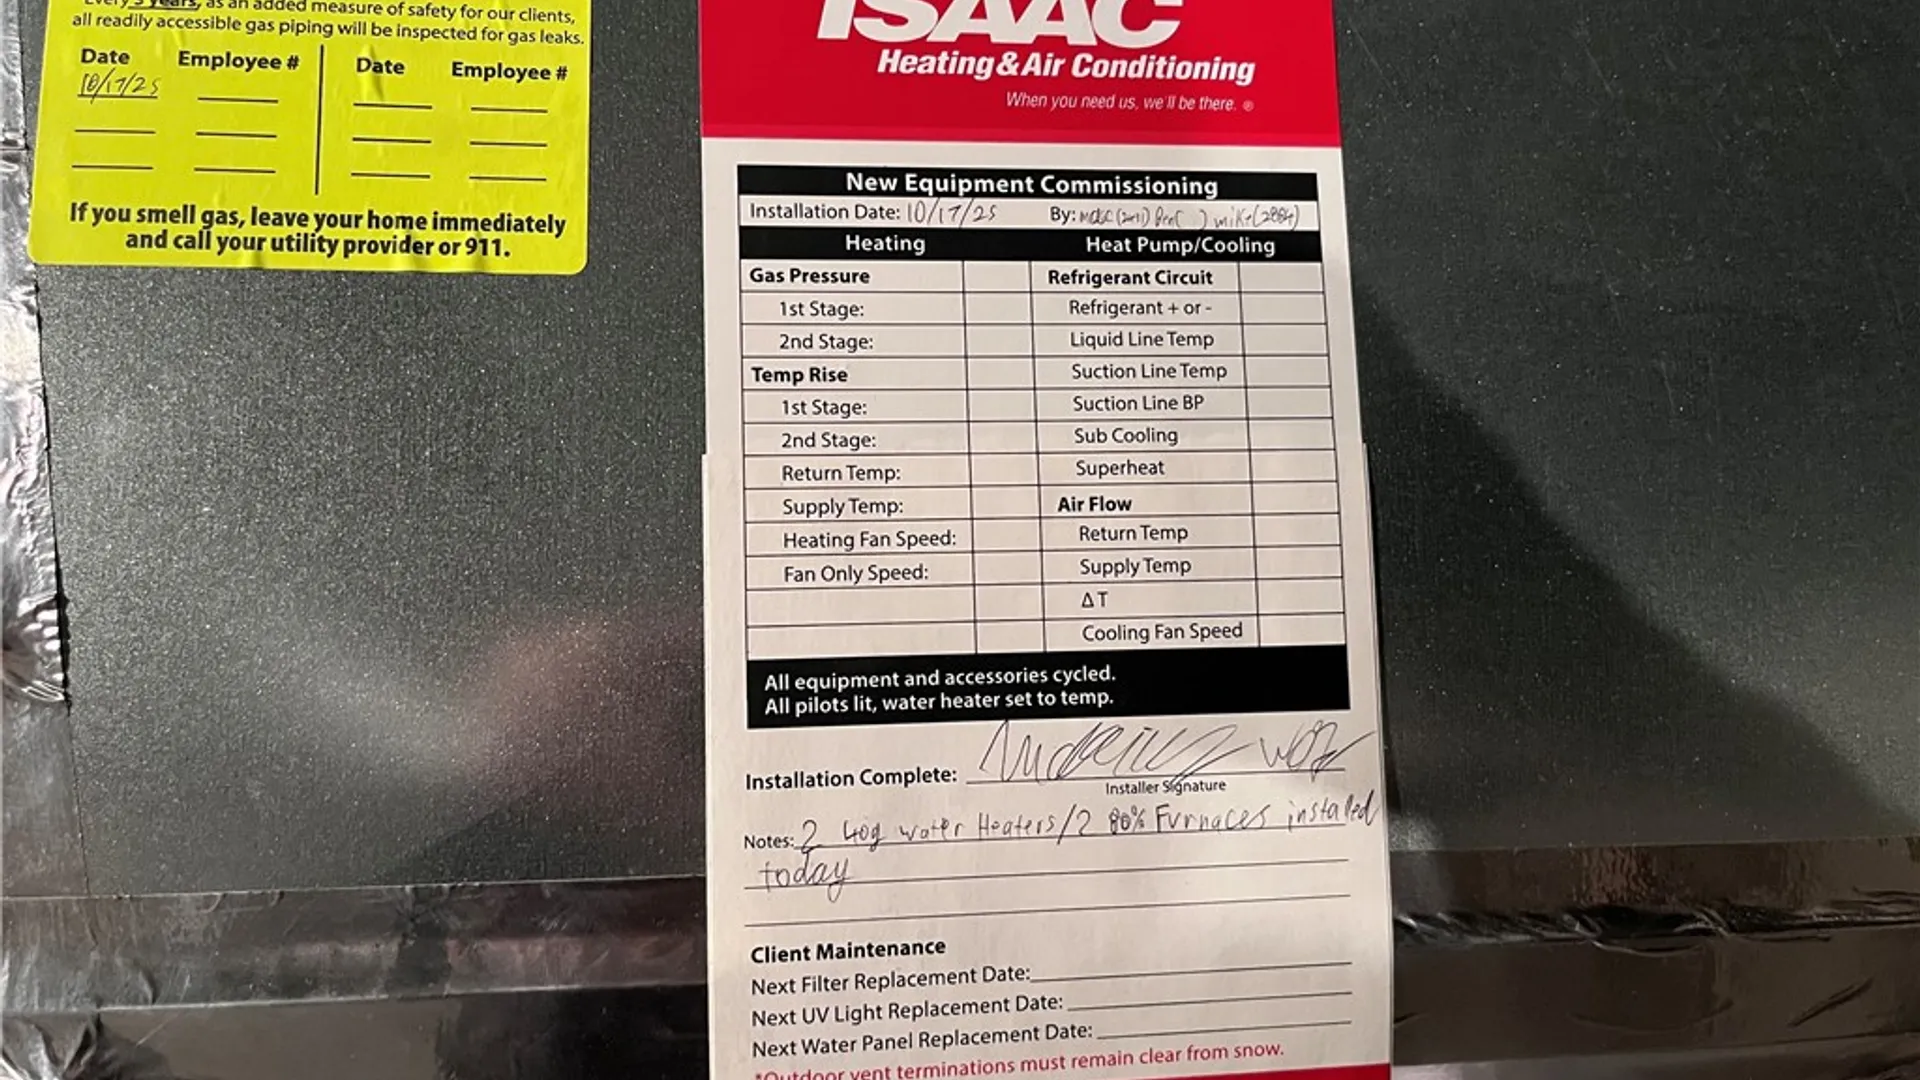 Every 3 years, as an added measure of safety for our clients,
all readily accessible gas piping will be inspected for gas leaks.
Date Employee # Date Employee #
10/17/25
If you smell gas, leave your home immediately
and call your utility provider or 911.
ISAAC
Heating & Air Conditioning
When you need us, we'll be there. ®
New Equipment Commissioning
Installation Date: 10/17/25 By: mike (2884)
Heating Heat Pump/Cooling
Gas Pressure Refrigerant Circuit
1st Stage: Refrigerant + or -
2nd Stage: Liquid Line Temp
Temp Rise Suction Line Temp
1st Stage: Suction Line BP
2nd Stage: Sub Cooling
Return Temp: Superheat
Supply Temp: Air Flow
Heating Fan Speed: Return Temp
Fan Only Speed: Supply Temp
Δ T
Cooling Fan Speed
All equipment and accessories cycled.
All pilots lit, water heater set to temp.
Installation Complete:
Installer Signature
Notes: 2 40g water Heaters/2 80% Furnaces installed
today
Client Maintenance
Next Filter Replacement Date:
Next UV Light Replacement Date:
Next Water Panel Replacement Date:
*Outdoor vent terminations must remain clear from snow.